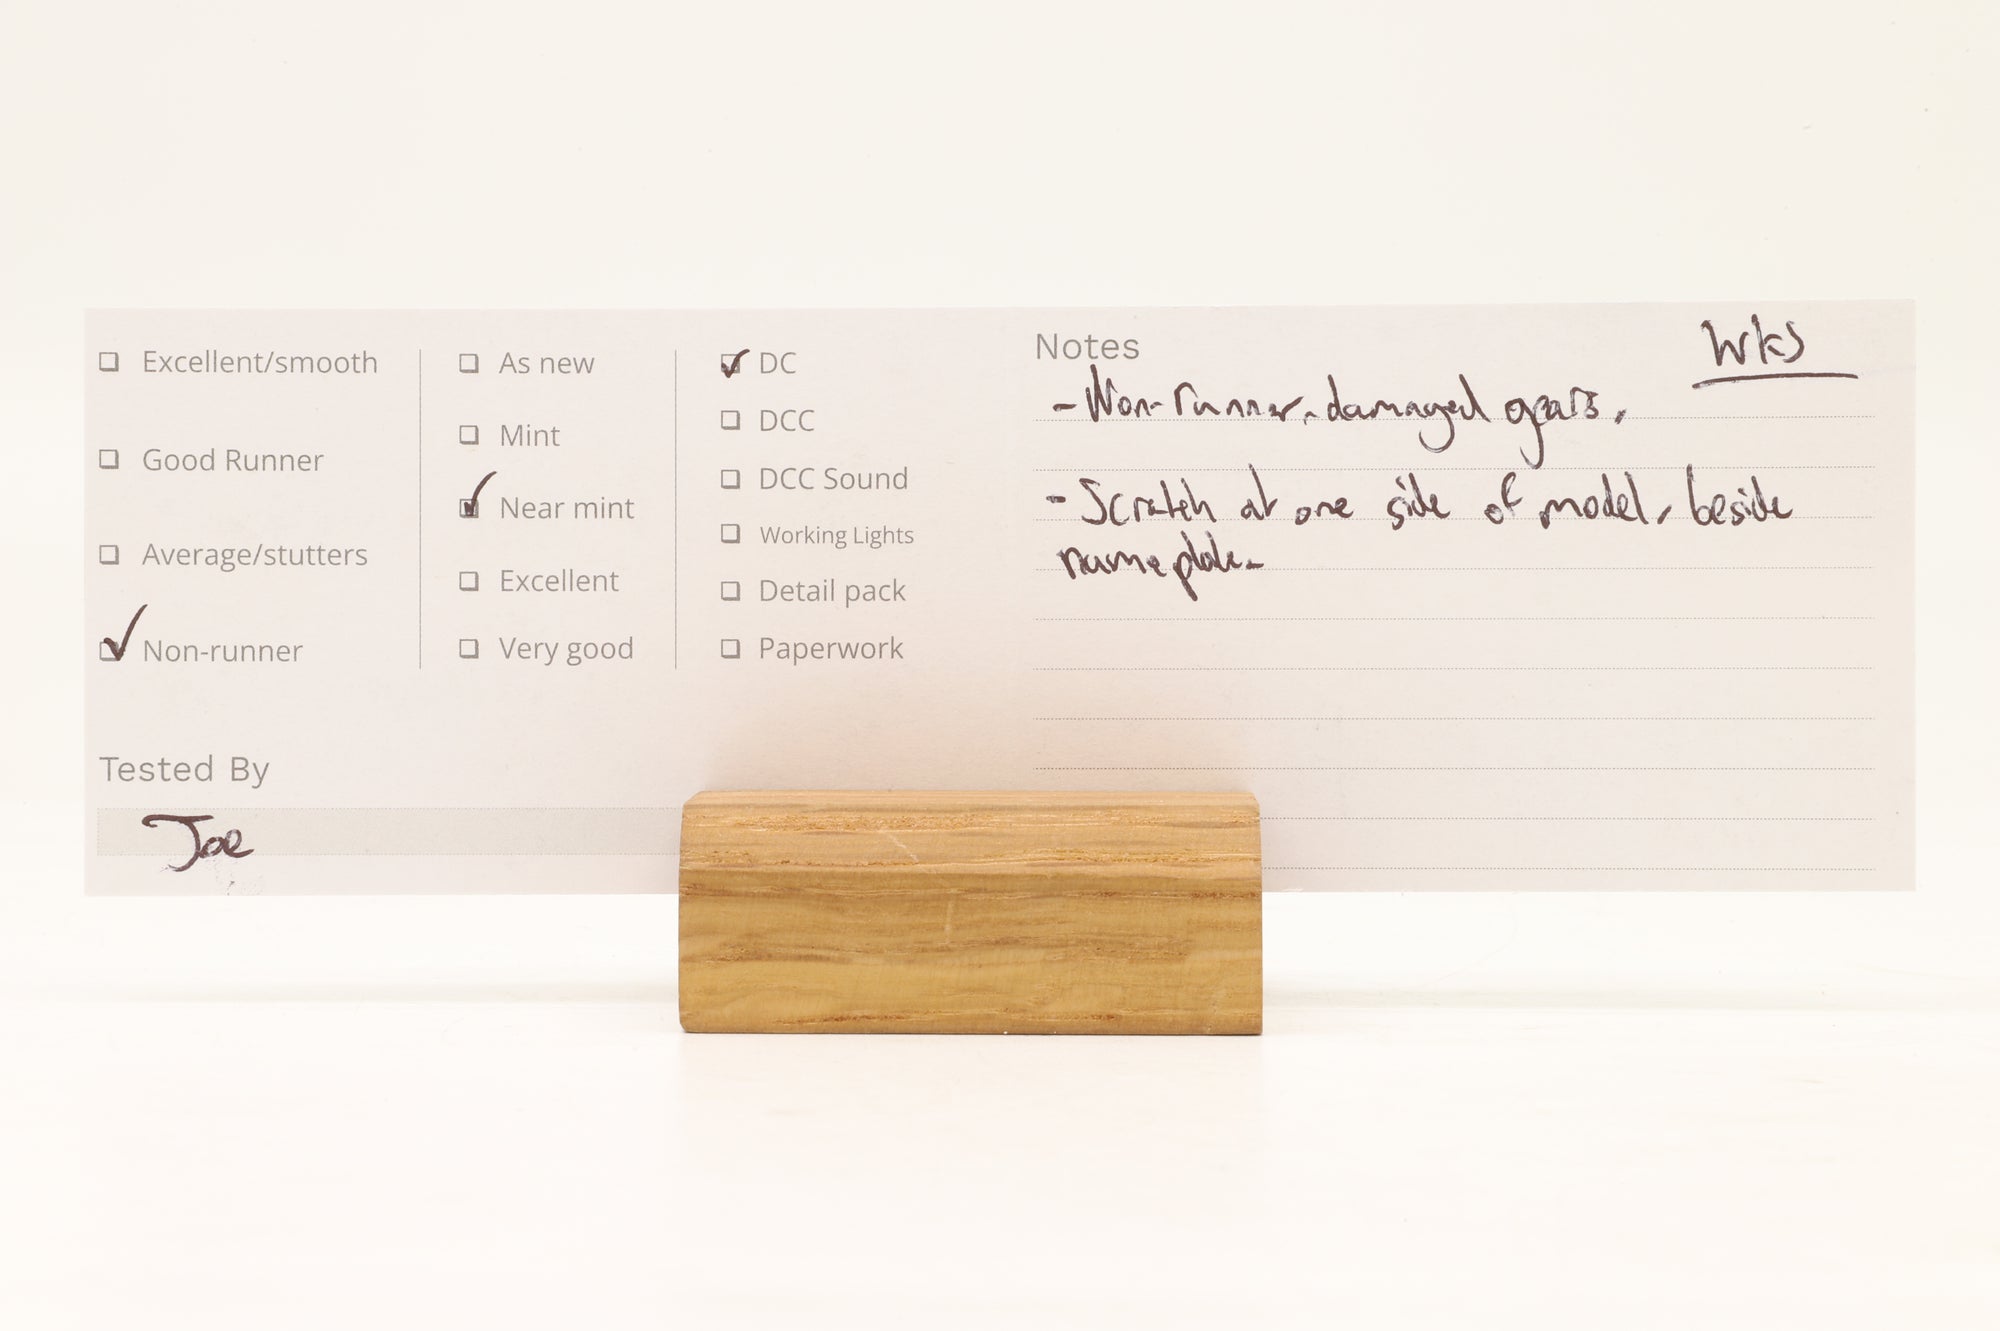 Excellent/smooth
Good Runner
Average/stutters
Non-runner
As new
Mint
Near mint
Excellent
Very good
DC
DCC
DCC Sound
Working Lights
Detail pack
Paperwork
Tested By
Joe
Notes
Wks
- Non-runner, damaged gears.
- Scratch at one side of model, beside
nameplate.